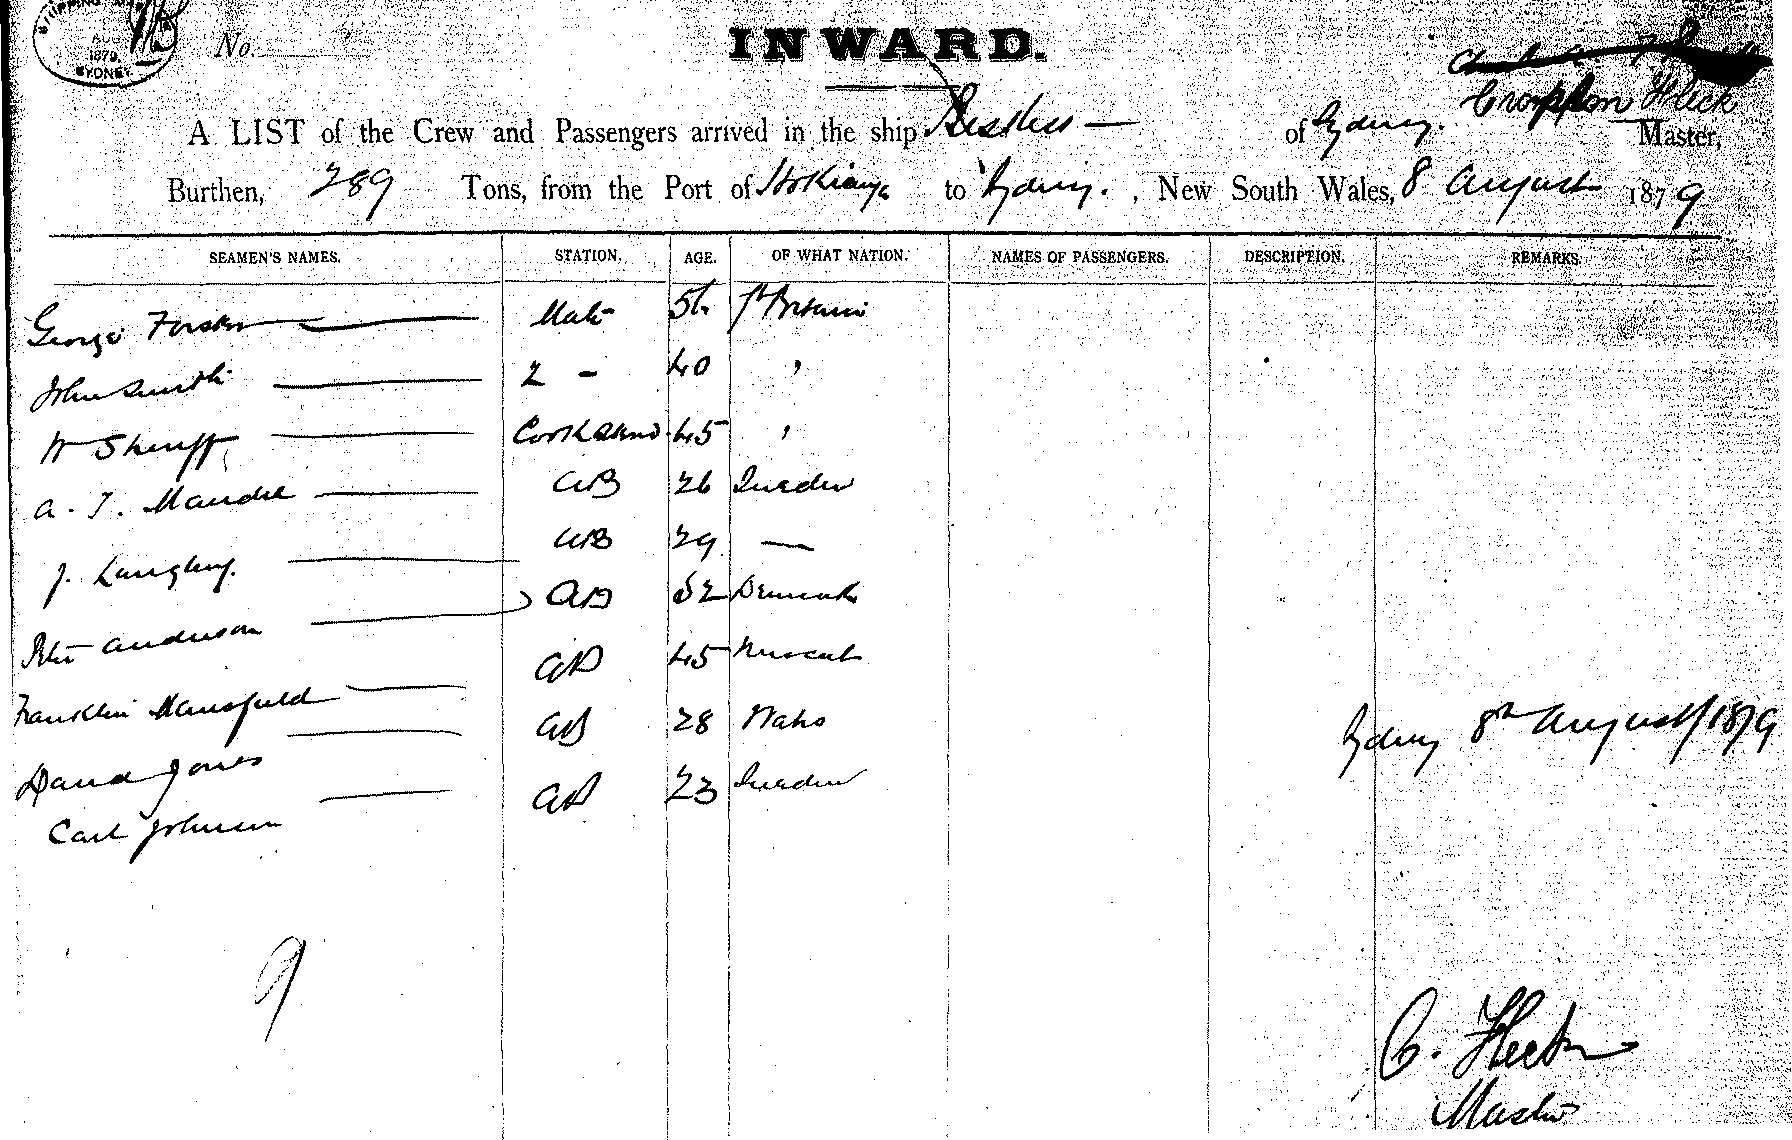 SHIPPING
1879
SYDNEY
No.
INWARD.
Crompton Fleck
A LIST of the Crew and Passengers arrived in the ship Restless — of Sydney. Master,
Burthen, 289 Tons, from the Port of Hokianga to Sydney. , New South Wales, 8 August 1879
SEAMEN'S NAMES. STATION. AGE. OF WHAT NATION. NAMES OF PASSENGERS. DESCRIPTION. REMARKS.
George Forster Mate 56 Gt Britain
John Smith 2 - 40 "
W Sheriff Cook & Stwd 45 "
A. J. AB 26 Sweden
J. Langley. AB 29 —
Peter Anderson AB 52 Denmark
Franklin Mansfield AB 45
David Jones AB 28 Wales
Carl Johnson AB 23 Sweden
Sydney 8th August/1879
9
C. Fleck
Master